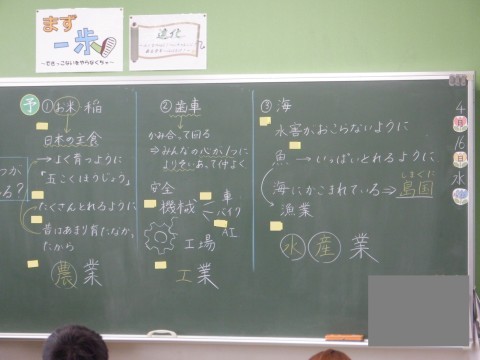 まず
一歩
～できっこないをやらなくちゃ～
進化
予 ①お米 稲
日本の主食
→よく育つように
「五こくほうじょう」
たくさんとれるように
昔はあまり育たなか
たから
農業
②歯車
かみ合って回る
⇒みんなの心が1つに
よりそいあって仲よく
安全
機械
車
バイク
AI
工場
工業
③海
水害がおこらないように
魚 → いっぱいとれるように
海にかこまれている⇒島国
しまぐに
漁業
水産業
4
月
16
日
水